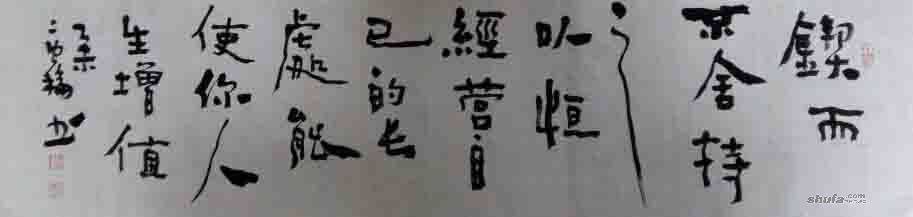 鍥而
不舍持
之
以恒
經營自
己的长
處能
使你人
生增值
書
shufa.com